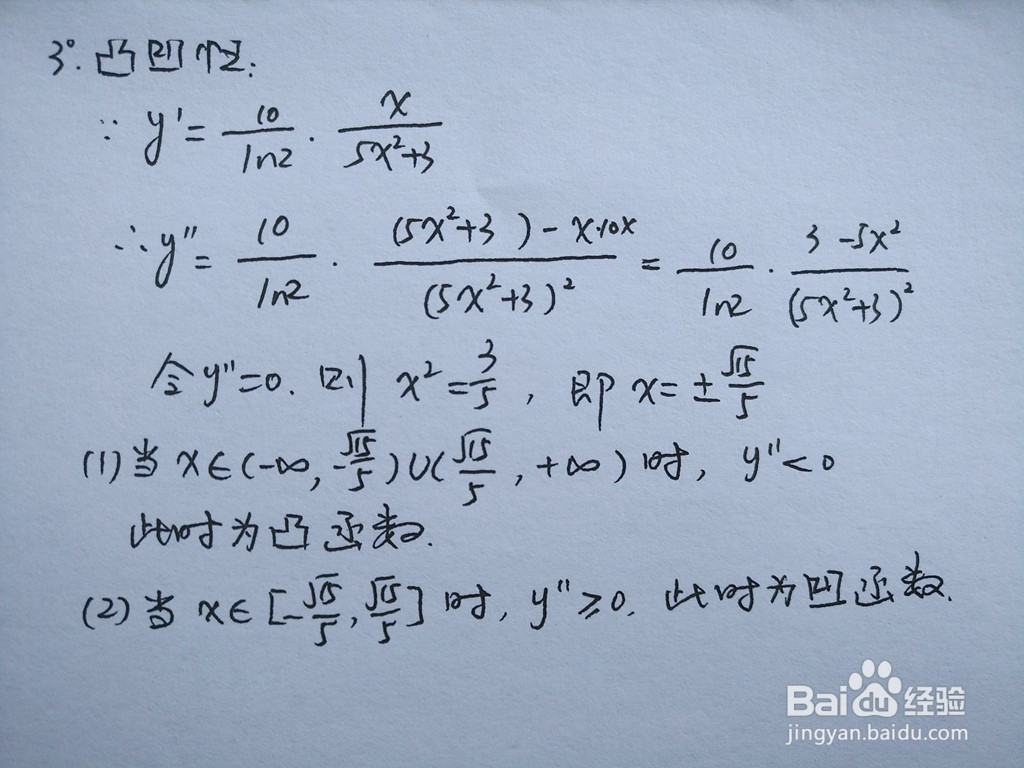 3°. 凸凹性:
∵ y' = 10/ln2 · x/(5x²+3)
∴ y'' = 10/ln2 · ((5x²+3) - x·10x)/(5x²+3)² = 10/ln2 · (3-5x²)/(5x²+3)²
令 y''=0. 则 x² = 3/5, 即 x = ±√15/5
(1) 当 x∈(-∞, -√15/5)∪(√15/5, +∞) 时, y''<0
此时为凸函数.
(2) 当 x∈[-√15/5, √15/5] 时, y''≥0. 此时为凹函数.
Baidu 经验
jingyan.baidu.com